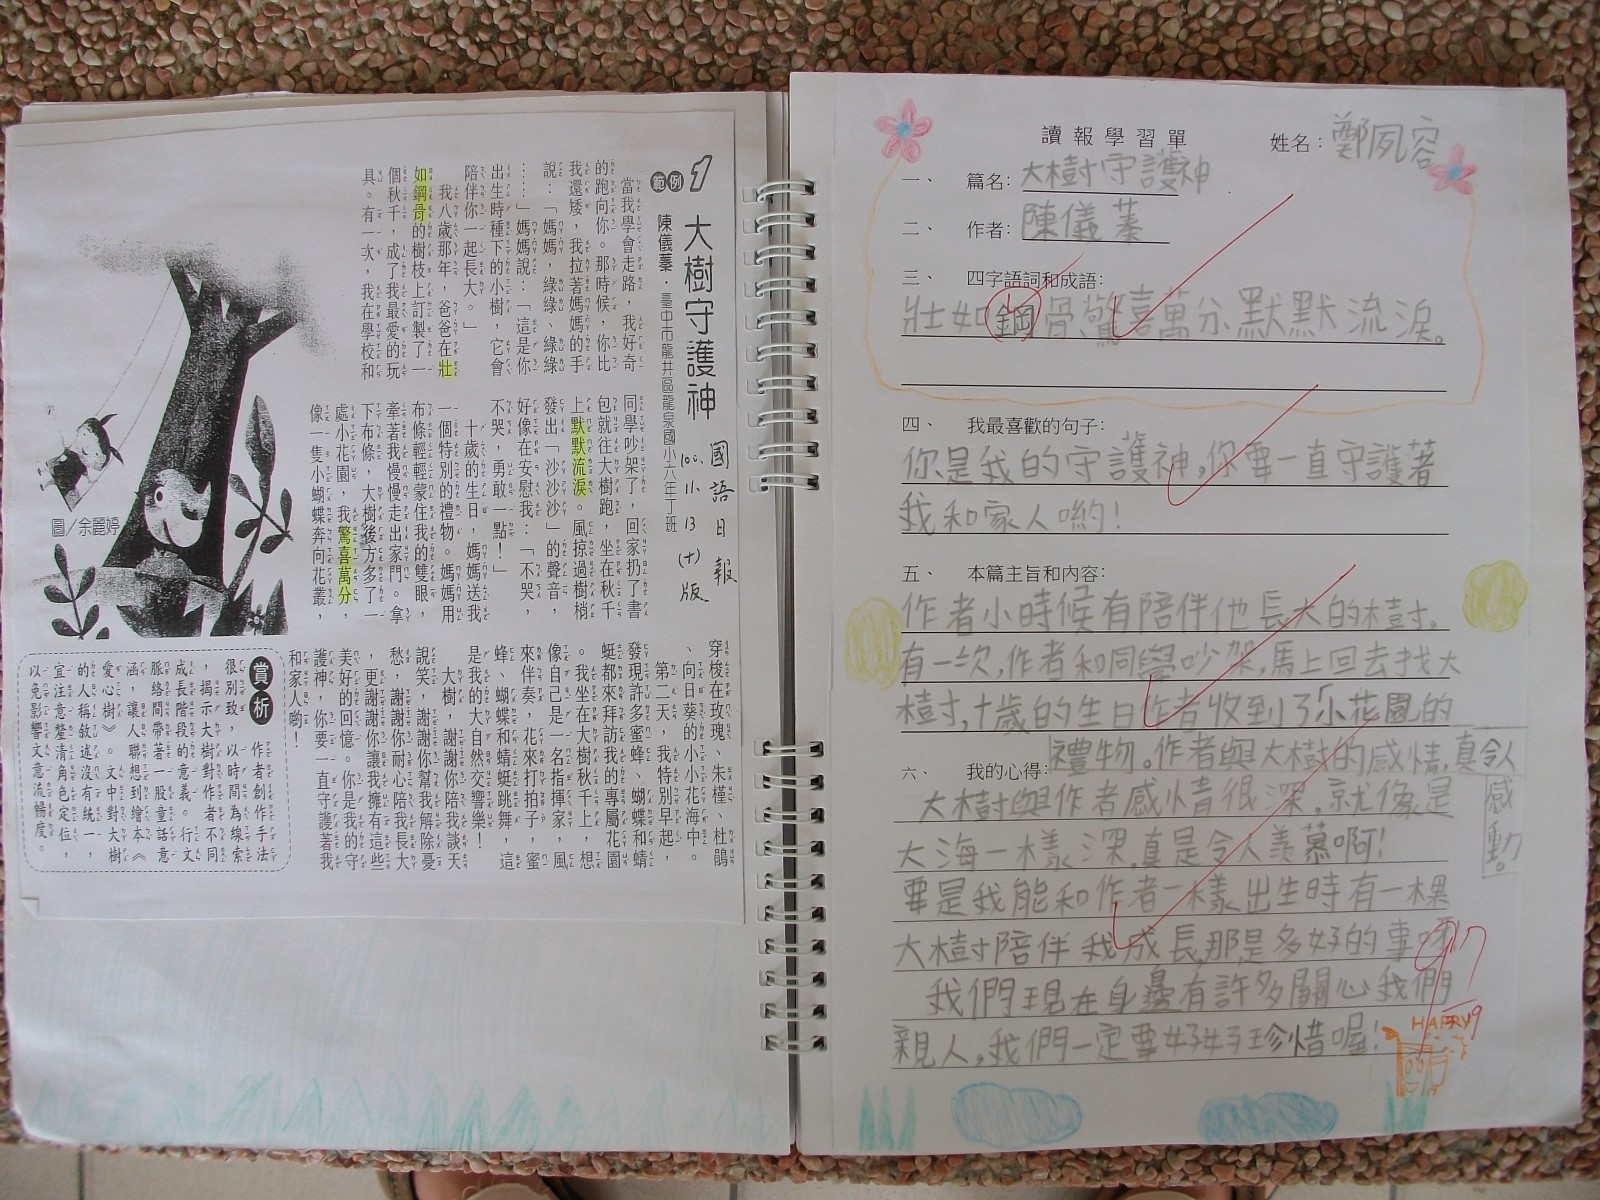 範例1
大樹守護神
陳儀蓁・臺中市龍井區龍泉國小六年丁班
國語日報
100.11.13(十)版
當我學會走路，我好奇
的跑向你。那時候，你比
我還矮，我拉著媽媽的手
說：「媽媽，綠綠、綠綠
……」媽媽說：「這是你
出生時種下的小樹，它會
陪伴你一起長大。」
我八歲那年，爸爸在壯
如鋼骨的樹枝上訂製了一
個秋千，成了我最愛的玩
具。有一次，我在學校和
同學吵架了，回家扔了書
包就往大樹跑，坐在秋千
上默默流淚。風掠過樹梢
發出「沙沙沙」的聲音，
好像在安慰我：「不哭，
不哭，勇敢一點！」
十歲的生日，媽媽送我
一個特別的禮物。媽媽用
布條輕輕蒙住我的雙眼，
牽著我慢慢走出家門。拿
下布條，大樹後方多了一
處小花園，我驚喜萬分，
像一隻小蝴蝶奔向花叢，
穿梭在玫瑰、朱槿、杜鵑
、向日葵的小小花海中。
第二天，我特別早起，
發現許多蜜蜂、蝴蝶和蜻
蜓都來拜訪我的專屬花園
。我坐在大樹秋千上，想
像自己是一名指揮家，風
來伴奏，花來打拍子，蜜
蜂、蝴蝶和蜻蜓跳舞，這
是我的大自然交響樂！
大樹，謝謝你陪我談天
說笑，謝謝你幫我解除憂
愁，謝謝你耐心陪我長大
，更謝謝你讓我擁有這些
美好的回憶。你是我的守
護神，你要一直守護著我
和家人喲！
圖／余麗婷
賞析
作者創作手法
很別致，以時間為線索
，揭示大樹對作者不同
成長階段的意義。行文
脈絡間帶著一股童話意
涵，讓人聯想到繪本《
愛心樹》。文中對大樹
的人稱敘述沒有統一，
宜注意釐清角色定位，
以免影響文意流暢度。
讀報學習單
姓名：鄭夙容
一、 篇名：大樹守護神
二、 作者：陳儀蓁
三、 四字語詞和成語：
壯如鋼骨、驚喜萬分、默默流淚。
四、 我最喜歡的句子：
你是我的守護神，你要一直守護著
我和家人喲！
五、 本篇主旨和內容：
作者小時候有陪伴他長大的樹。
有一次，作者和同學吵架，馬上回去找大
樹，十歲的生日作者收到了「小花園的
禮物。作者與大樹的感情，真令人
感動。
六、 我的心得：
大樹與作者感情很深，就像是
大海一樣深，真是令人羨慕啊！
要是我能和作者一樣，出生時有一棵
大樹陪伴我成長，那是多好的事呀
我們現在身邊有許多關心我們
親人，我們一定要好好珍惜喔！
HAPPY